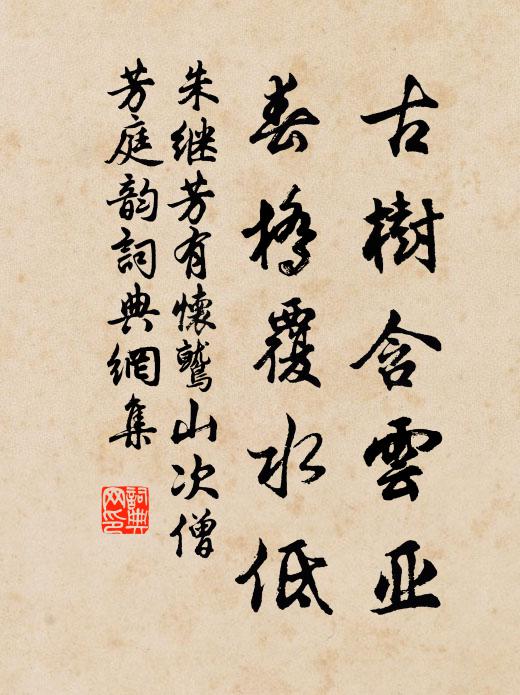 古樹含雲亚
春橋覆水低
朱继芳有懷鷲山次僧
芳庭韵詞典網集
詞典网印